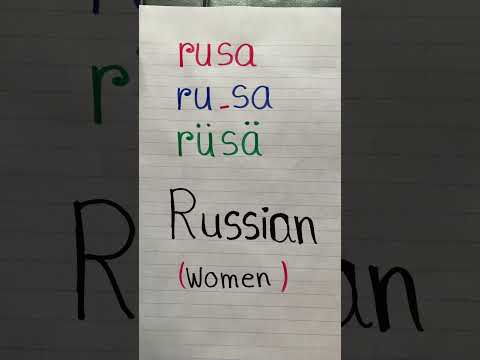 rusa
ru-sa
rüsä
Russian
(Women)